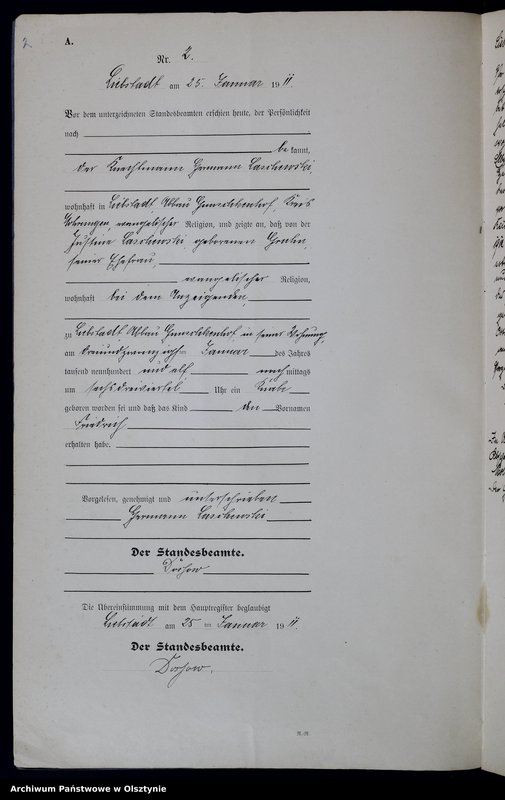 2
A.
Nr. 2.
Liebstadt am 25. Januar 19 11.
Vor dem unterzeichneten Standesbeamten erschien heute, der Persönlichkeit
nach
be kannt,
der Hermann Laschewski,
wohnhaft in Liebstadt, Abbau Kreis
Mohrungen, evangelischer Religion, und zeigte an, daß von der
Justine Laschewski geborenen
seiner Ehefrau
evangelischer Religion,
wohnhaft bei dem Anzeigenden,
zu Liebstadt Abbau in seiner Wohnung,
am dreiundzwanzigsten Januar des Jahres
tausend neunhundert und elf nachmittags
um sechsdreiviertel Uhr ein Knabe
geboren worden sei und daß das Kind den Vornamen
Friedrich
erhalten habe.
Vorgelesen, genehmigt und unterschrieben
Hermann Laschewski
Der Standesbeamte.
Dorsow
Die Übereinstimmung mit dem Hauptregister beglaubigt
Liebstadt am 25 ten Januar 19 11.
Der Standesbeamte.
Dorsow.
Archiwum Państwowe w Olsztynie